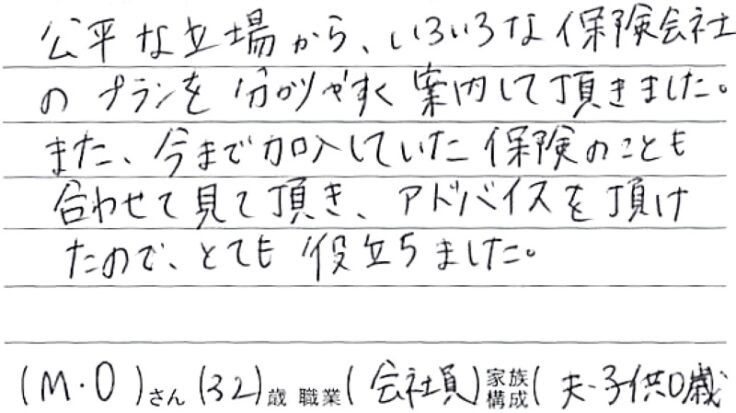 公平な立場から、いろいろな保険会社
のプランを分かりやすく案内して頂きました。
また、今まで加入していた保険のことも
合わせて見て頂き、アドバイスを頂け
たので、とても役立ちました。
(M・O)さん(32)歳 職業(会社員)家族構成(夫・子供0歳